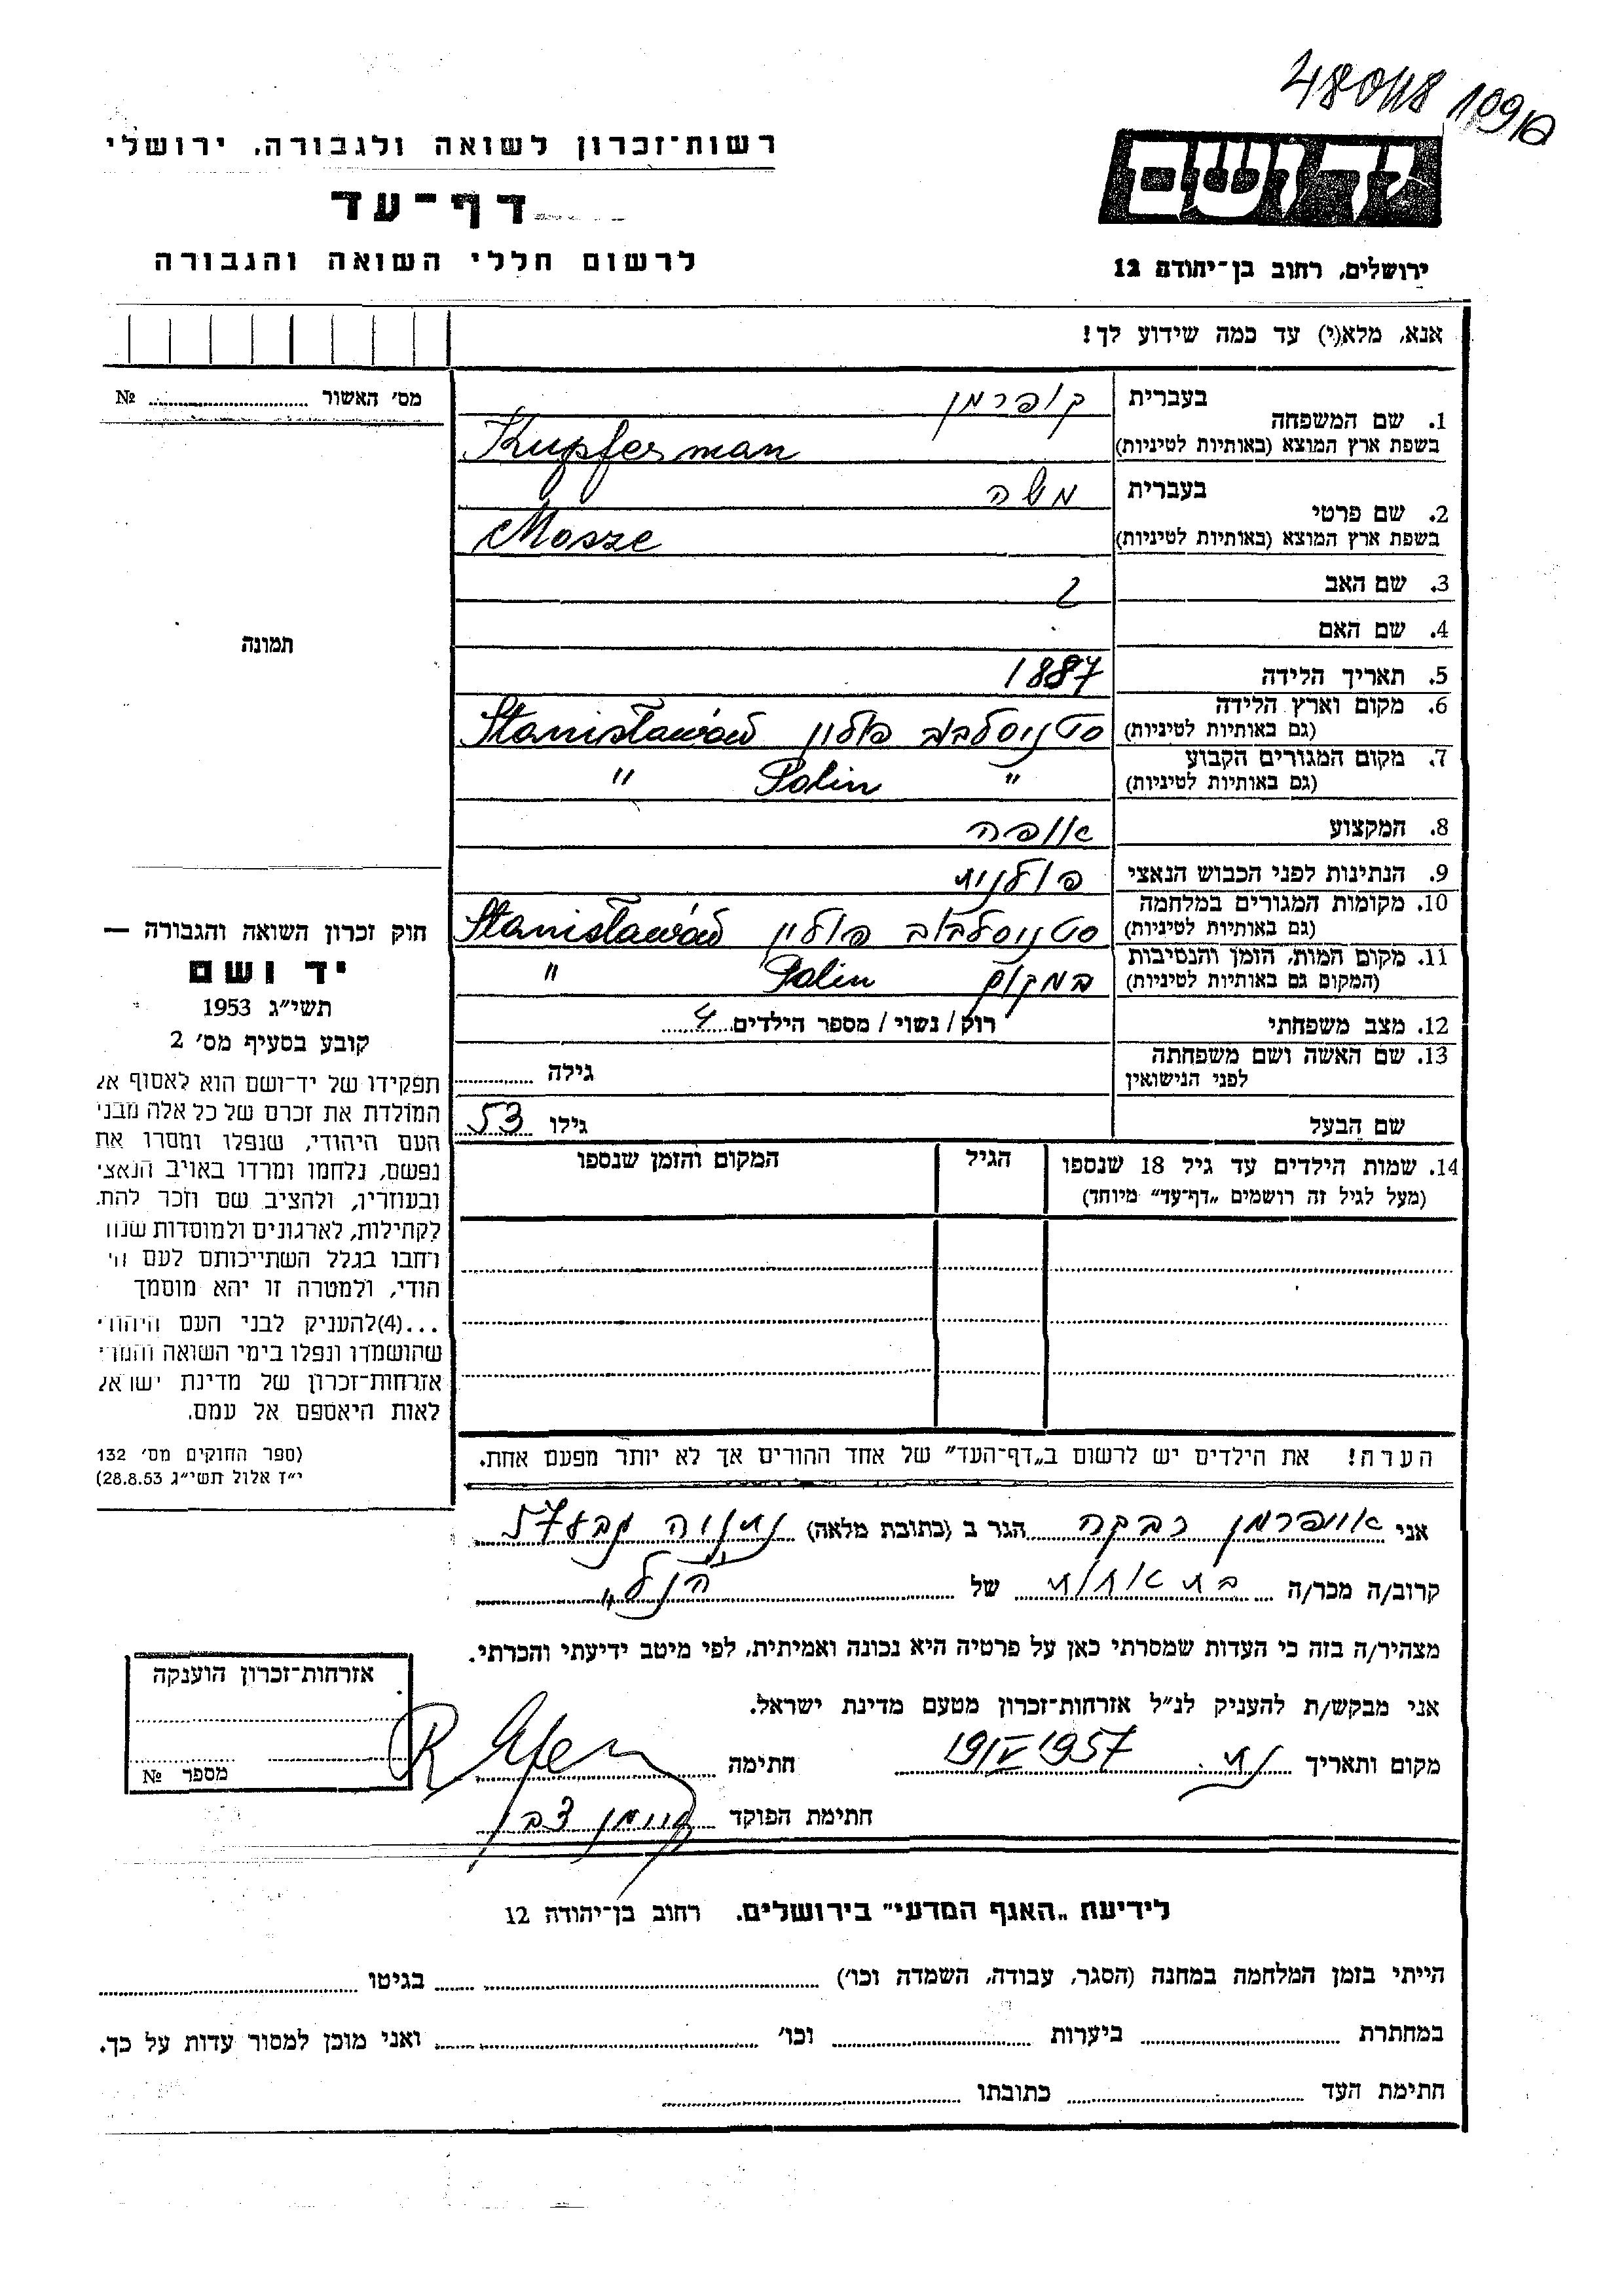 48048 109/a
יד ושם
ירושלים, רחוב בן־יהודה 12
רשות־זכרון לשואה ולגבורה, ירושלי
דף־עד
לרשום חללי השואה והגבורה
אנא, מלא(י) עד כמה שידוע לך!
מס׳ האשור ........ №
בעברית קופרמן
1. שם המשפחה
בשפת ארץ המוצא (באותיות לטיניות) Kupferman
בעברית משה
2. שם פרטי
בשפת ארץ המוצא (באותיות לטיניות) Mosze
3. שם האב
4. שם האם
תמונה
5. תאריך הלידה 1887
6. מקום וארץ הלידה
(גם באותיות לטיניות) סטניסלבוב פולין Stanisławów
7. מקום המגורים הקבוע
(גם באותיות לטיניות) " Polin "
8. המקצוע אופה
9. הנתינות לפני הכבוש הנאצי פולנית
10. מקומות המגורים במלחמה
(גם באותיות לטיניות) סטניסלבוב פולין Stanisławów
11. מקום המות, הזמן והנסיבות
(המקום גם באותיות לטיניות) במקום Polin "
12. מצב משפחתי רוק / נשוי / מספר הילדים 4
13. שם האשה ושם משפחתה
לפני הנישואין גילה
שם הבעל גילו 53
14. שמות הילדים עד גיל 18 שנספו
(מעל לגיל זה רושמים „דף־עד” מיוחד)
הגיל
המקום והזמן שנספו
חוק זכרון השואה והגבורה —
יד ושם
תשי״ג 1953
קובע בסעיף מס׳ 2
תפקידו של יד־ושם הוא לאסוף אל
המולדת את זכרם של כל אלה מבני
העם היהודי, שנפלו ומסרו את
נפשם, נלחמו ומרדו באויב הנאצי
ובעוזריו, ולהציב שם וזכר להם,
לקהילות, לארגונים ולמוסדות שנח
רחבו בגלל השתייכותם לעם הי
הודי, ולמטרה זו יהא מוסמך
...(4)להעניק לבני העם היהודי
שהושמדו ונפלו בימי השואה והמרי
אזרחות־זכרון של מדינת ישראל
לאות היאספם אל עמם.
(ספר החוקים מס׳ 132
י״ז אלול תשי״ג 28.8.53)
הערה! את הילדים יש לרשום ב„דף־העד” של אחד ההורים אך לא יותר מפעם אחת.
אני רבקה הגר ב (כתובת מלאה) נתניה
קרוב/ה מכר/ה בת אחות של הנ״ל
מצהיר/ה בזה כי העדות שמסרתי כאן על פרטיה היא נכונה ואמיתית, לפי מיטב ידיעתי והכרתי.
אני מבקש/ת להעניק לנ״ל אזרחות־זכרון מטעם מדינת ישראל.
מקום ותאריך נת. 19/V 1957 חתימה
חתימת הפוקד
אזרחות־זכרון הוענקה
מספר №
לידיעת „האגף המדעי” בירושלים. רחוב בן־יהודה 12
הייתי בזמן המלחמה במחנה (הסגר, עבודה, השמדה וכו׳) ........ בגיטו ........
במחתרת ........ ביערות ........ וכו׳ ........ ואני מוכן למסור עדות על כך.
חתימת העד ........ כתובתו ........